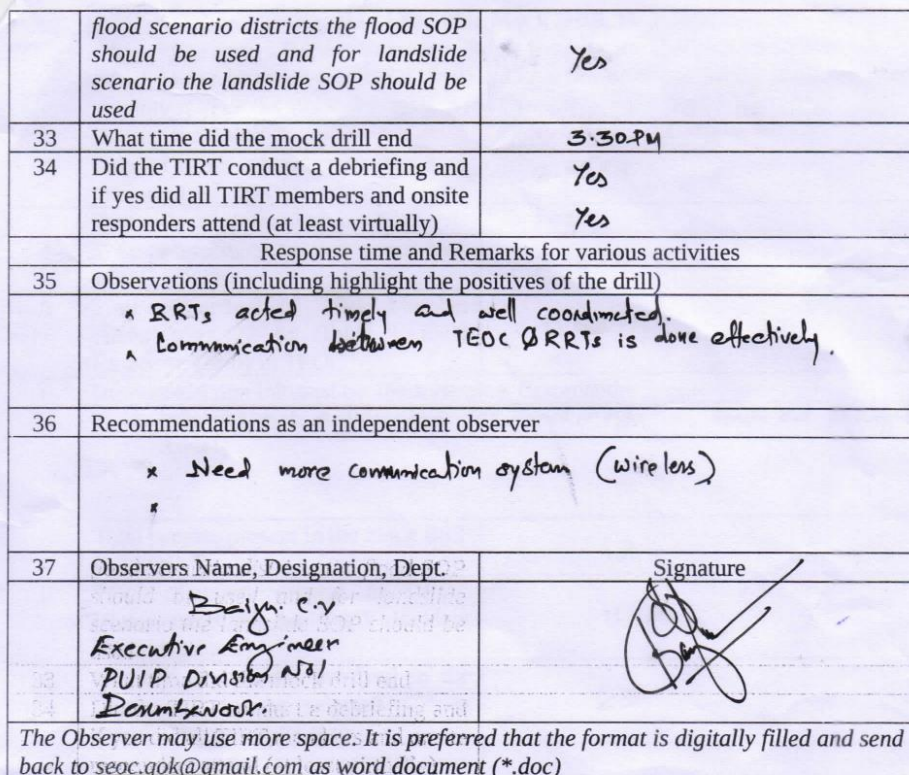 flood scenario districts the flood SOP
should be used and for landslide
scenario the landslide SOP should be
used
Yes
33 What time did the mock drill end 3.30 PM
34 Did the TIRT conduct a debriefing and
if yes did all TIRT members and onsite
responders attend (at least virtually)
Yes
Yes
Response time and Remarks for various activities
35 Observations (including highlight the positives of the drill)
* RRTs acted timely and well coordinated.
* Communication between TEOC & RRTs is done effectively.
36 Recommendations as an independent observer
* Need more communication system (wireless)
*
37 Observers Name, Designation, Dept. Signature
Baiju C.V
Executive Engineer
PUIP Division No1
The Observer may use more space. It is preferred that the format is digitally filled and send
back to seoc.gok@gmail.com as word document (*.doc)